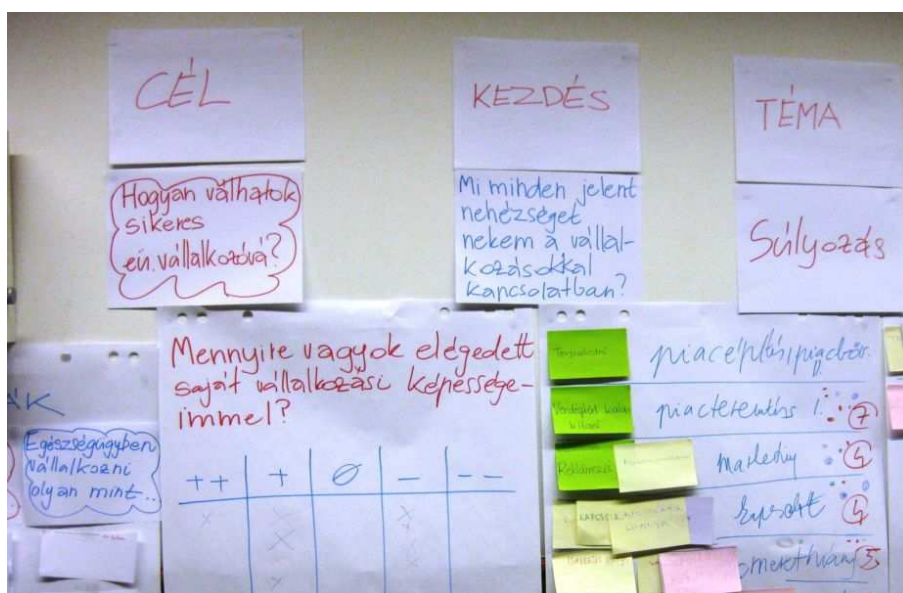 CÉL
KEZDÉS
TÉMA
Hogyan válhatok
sikeres
eü. vállalkozóvá?
Mi minden jelent
nehézséget
nekem a vállal-
kozásokkal
kapcsolatban?
Súlyozás
Mennyire vagyok elégedett
saját vállalkozási képessége-
immel?
++ + 0 - --
x x
x
x x
ÁK
Egészségügyben
vállalkozni
olyan mint..
piacépítés
piacteremtés 1. 7
marketing
kapcsolat
5